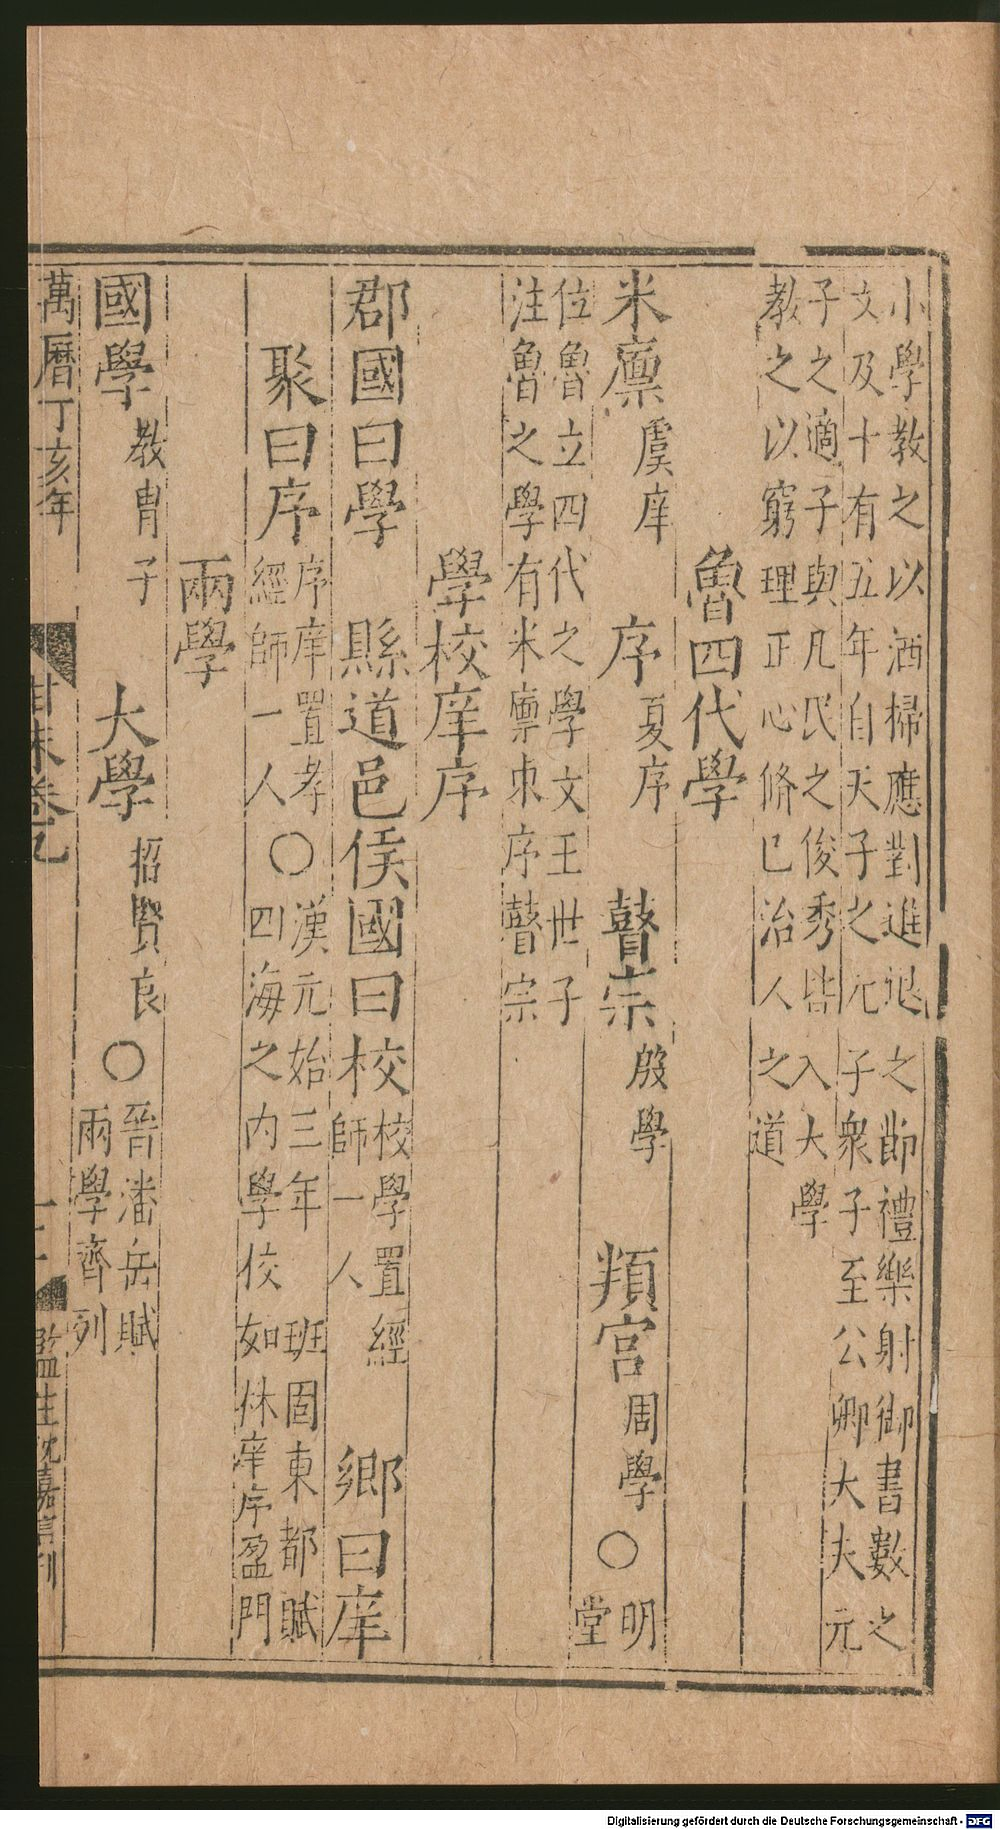 小學教之以洒掃應對進退之節禮樂射御書數之
文及十有五年自天子之元子衆子至公卿大夫元
子之適子與凡民之俊秀皆入大學
教之以窮理正心脩已治人之道
魯四代學
米廩虞庠 序夏序 瞽宗殷學 頖宮周學〇明堂
位魯立四代之學文王世子
注魯之學有米廩東序瞽宗
學校庠序
郡國曰學 縣道邑侯國曰校校學置經師一人 鄉曰庠
聚曰序序庠置孝經師一人〇漢元始三年 班固東都賦四海之内學校如林庠序盈門
兩學
國學教胄子 大學招賢良〇晉潘岳賦兩學齊列
萬曆丁亥年
監生沈嘉 刊
Digitalisierung gefördert durch die Deutsche Forschungsgemeinschaft - DFG